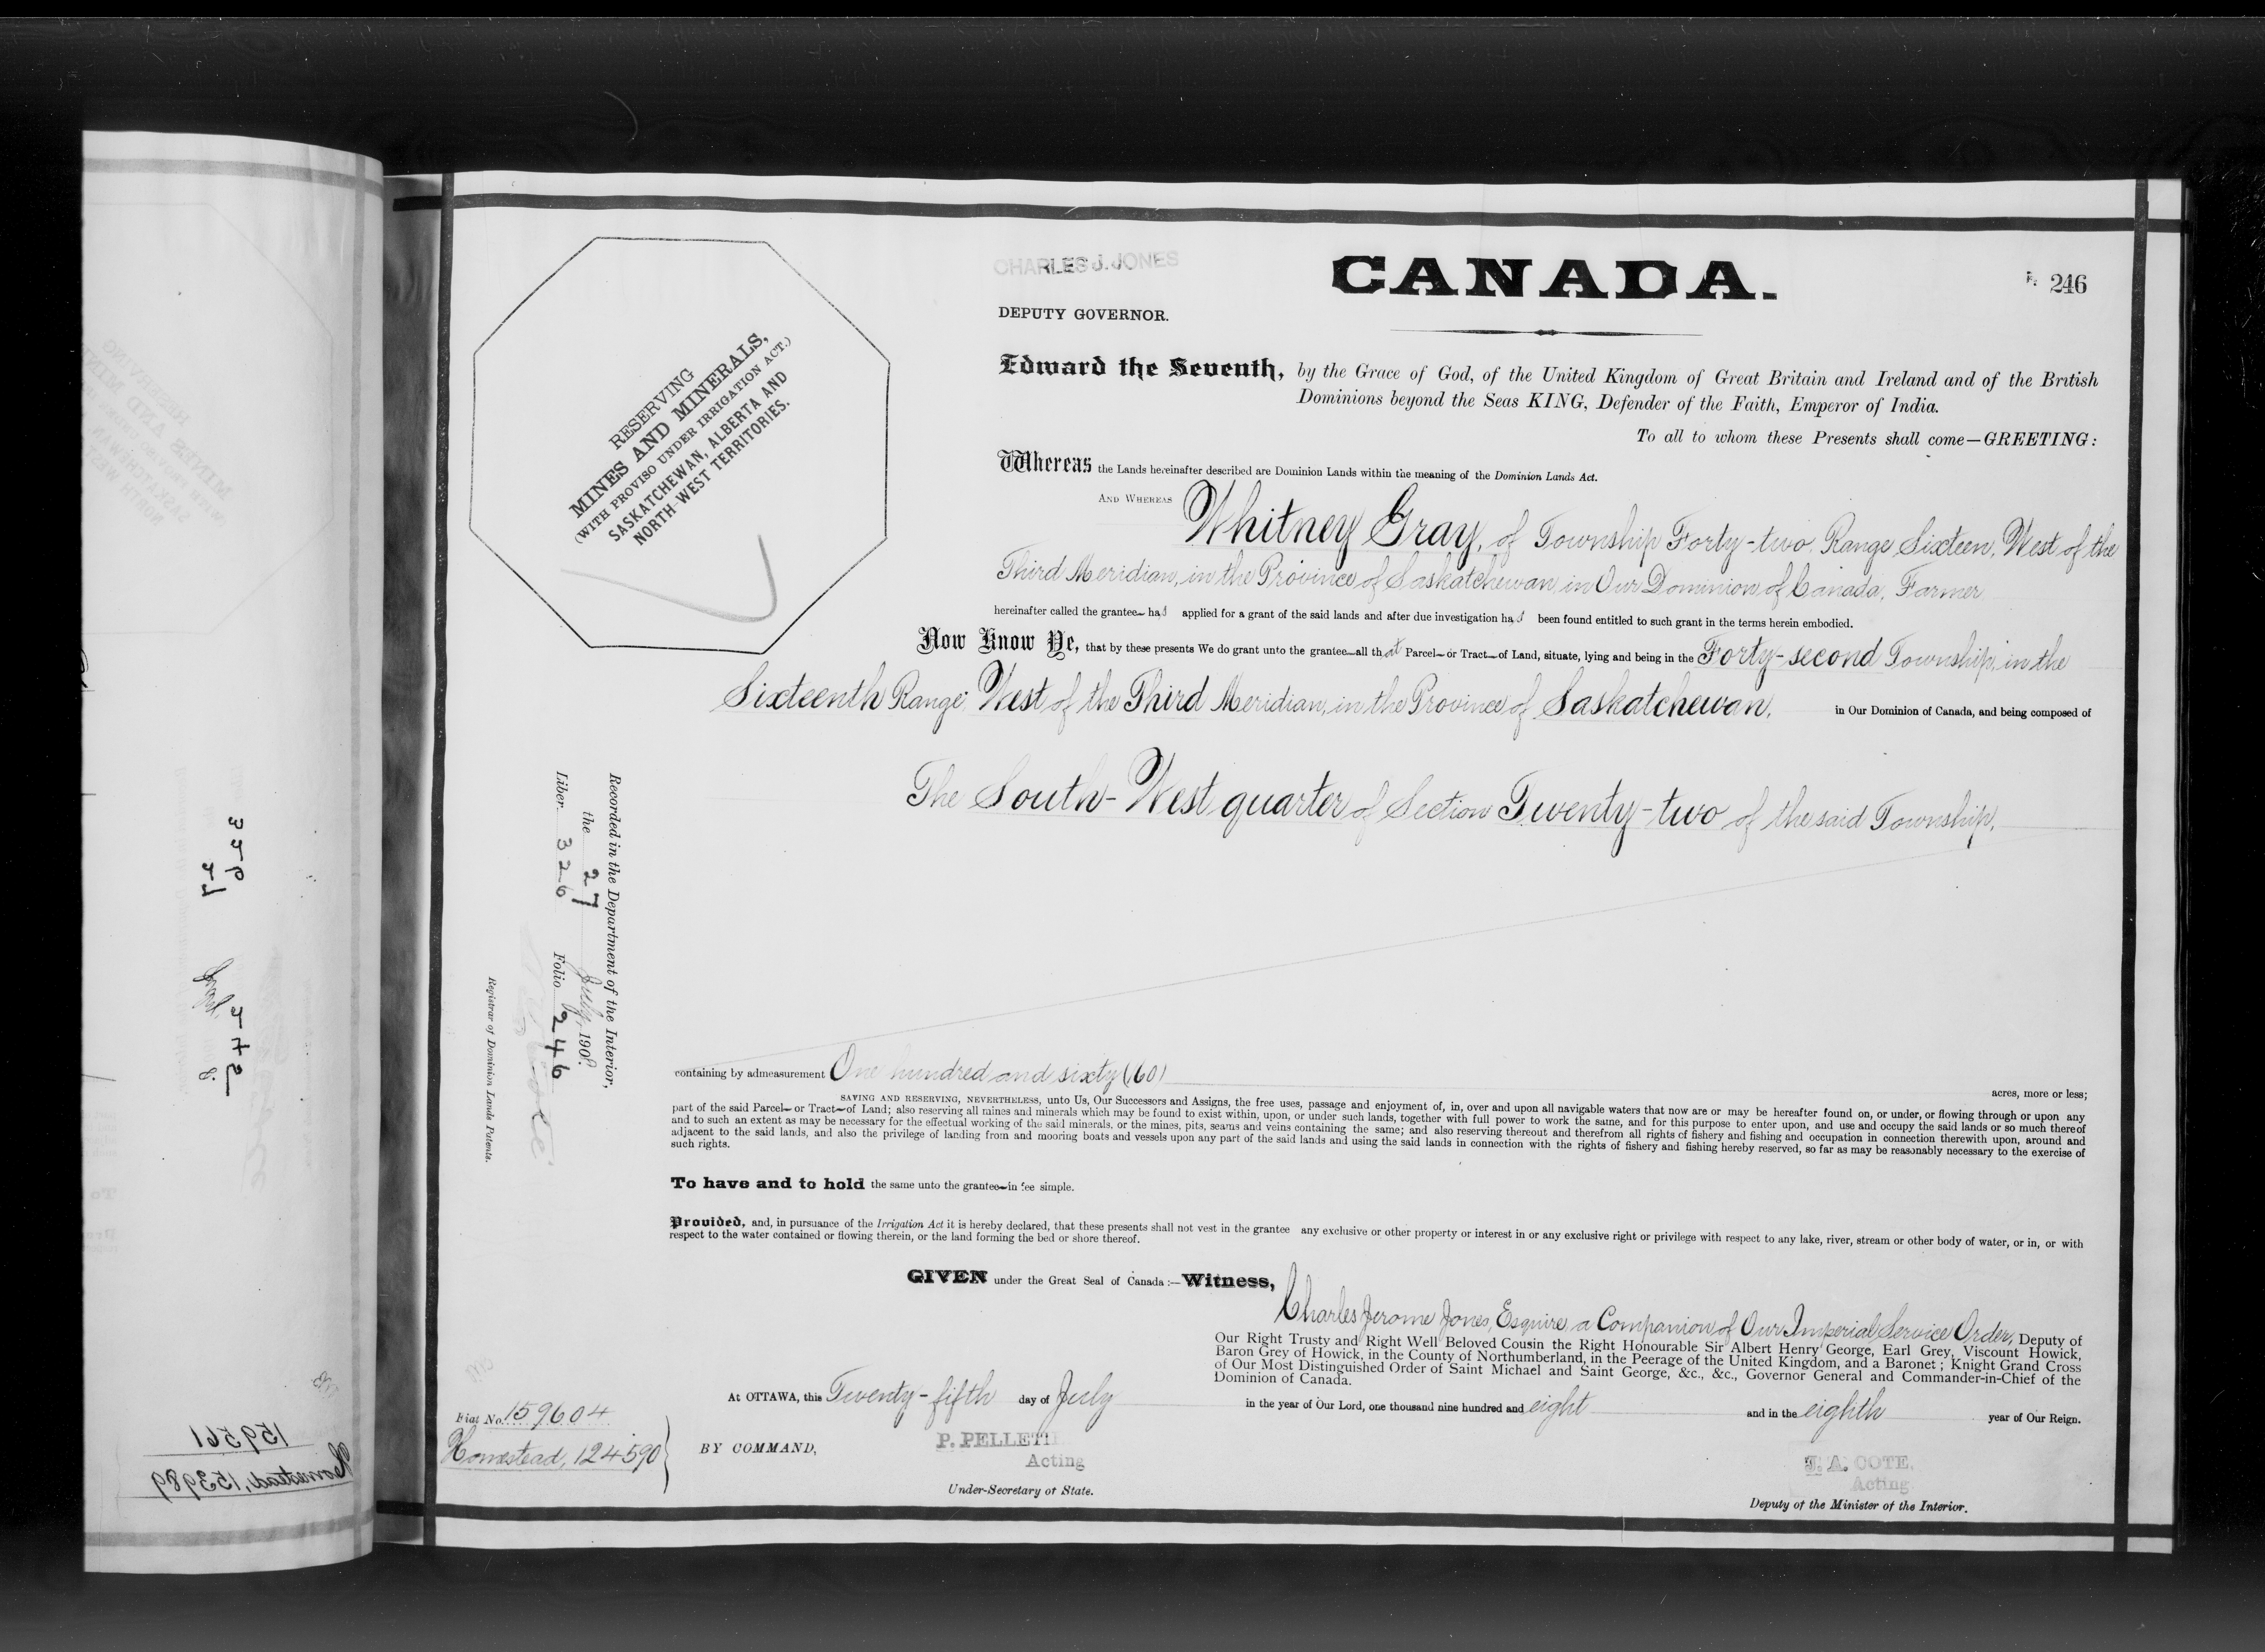 CHARLES J. JONES
DEPUTY GOVERNOR.
CANADA.
246
RESERVING
MINES AND MINERALS,
(WITH PROVISO UNDER IRRIGATION ACT.)
SASKATCHEWAN, ALBERTA AND
NORTH-WEST TERRITORIES.
Edward the Seventh, by the Grace of God, of the United Kingdom of Great Britain and Ireland and of the British
Dominions beyond the Seas KING, Defender of the Faith, Emperor of India.
To all to whom these Presents shall come—GREETING:
Whereas the Lands hereinafter described are Dominion Lands within the meaning of the Dominion Lands Act.
AND WHEREAS Whitney Gray, of Township Forty-two, Range Sixteen, West of the
Third Meridian, in the Province of Saskatchewan, in Our Dominion of Canada, Farmer
hereinafter called the grantee has applied for a grant of the said lands and after due investigation has been found entitled to such grant in the terms herein embodied.
Now Know Ye, that by these presents We do grant unto the grantee all that Parcel or Tract of Land, situate, lying and being in the Forty-second Township, in the
Sixteenth Range, West of the Third Meridian, in the Province of Saskatchewan, in Our Dominion of Canada, and being composed of
The South-West quarter of Section Twenty-two of the said Township,
Recorded in the Department of the Interior,
the 27 July, 1908.
Liber 326 Folio 246
Registrar of Dominion Lands Patents.
containing by admeasurement One hundred and sixty (160) acres, more or less;
SAVING AND RESERVING, NEVERTHELESS, unto Us, Our Successors and Assigns, the free uses, passage and enjoyment of, in, over and upon all navigable waters that now are or may be hereafter found on, or under, or flowing through or upon any
part of the said Parcel or Tract of Land; also reserving all mines and minerals which may be found to exist within, upon, or under such lands, together with full power to work the same, and for this purpose to enter upon, and use and occupy the said lands or so much thereof
and to such an extent as may be necessary for the effectual working of the said minerals, or the mines, pits, seams and veins containing the same; and also reserving thereout and therefrom all rights of fishery and fishing and occupation in connection therewith upon, around and
adjacent to the said lands, and also the privilege of landing from and mooring boats and vessels upon any part of the said lands and using the said lands in connection with the rights of fishery and fishing hereby reserved, so far as may be reasonably necessary to the exercise of
such rights.
To have and to hold the same unto the grantee in fee simple.
Provided, and, in pursuance of the Irrigation Act it is hereby declared, that these presents shall not vest in the grantee any exclusive or other property or interest in or any exclusive right or privilege with respect to any lake, river, stream or other body of water, or in, or with
respect to the water contained or flowing therein, or the land forming the bed or shore thereof.
GIVEN under the Great Seal of Canada:—Witness,
Charles Jerome Jones, Esquire, a Companion of Our Imperial Service Order, Deputy of
Our Right Trusty and Right Well Beloved Cousin the Right Honourable Sir Albert Henry George, Earl Grey, Viscount Howick,
Baron Grey of Howick, in the County of Northumberland, in the Peerage of the United Kingdom, and a Baronet; Knight Grand Cross
of Our Most Distinguished Order of Saint Michael and Saint George, &c., &c., Governor General and Commander-in-Chief of the
Dominion of Canada.
At OTTAWA, this Twenty-fifth day of July in the year of Our Lord, one thousand nine hundred and eight and in the eighth year of Our Reign.
Fiat No. 159604
Homestead, 124590
BY COMMAND,
P. PELLETI
Acting
Under-Secretary of State.
J. A. COTE,
Acting
Deputy of the Minister of the Interior.
159561
Homestead, 153989